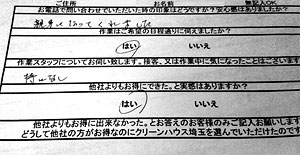 ご住所 お名前 無記入OK
お電話で問い合わせていただいた時の印象はどうですか?安心感はありましたか?
親身になってくれました
作業はご希望の日程通りに伺えましたか?
はい いいえ
作業スタッフについてお伺い致します。接客、又は作業中に気になったことはございます
特になし
他社よりもお得にできた。と実感はありますか?
はい いいえ
他社よりもお得に出来なかった。とお答えのお客様のみご記入お願いします
どうして他社の方がお得なのにクリーンハウス埼玉を選んでいただけたのです